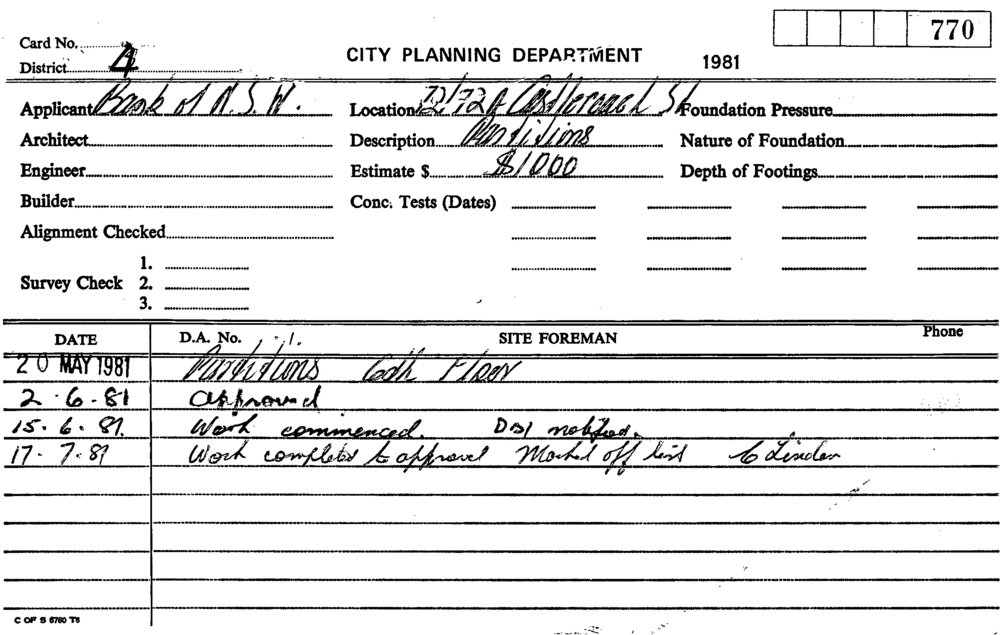 770
Card No.
District 4
CITY PLANNING DEPARTMENT 1981
Applicant Bank of N.S.W. Location 72/72A Castlereagh St Foundation Pressure
Architect Description Partitions Nature of Foundation
Engineer Estimate $ $1000 Depth of Footings
Builder Conc. Tests (Dates)
Alignment Checked
Survey Check 1.
2.
3.
DATE D.A. No. SITE FOREMAN Phone
20 MAY 1981 Partitions 6th Floor
2.6.81 Approved
15.6.81. Work commenced. DSI notified.
17.7.81 Work completed to approval Marked off list
C OF S 6760 T6